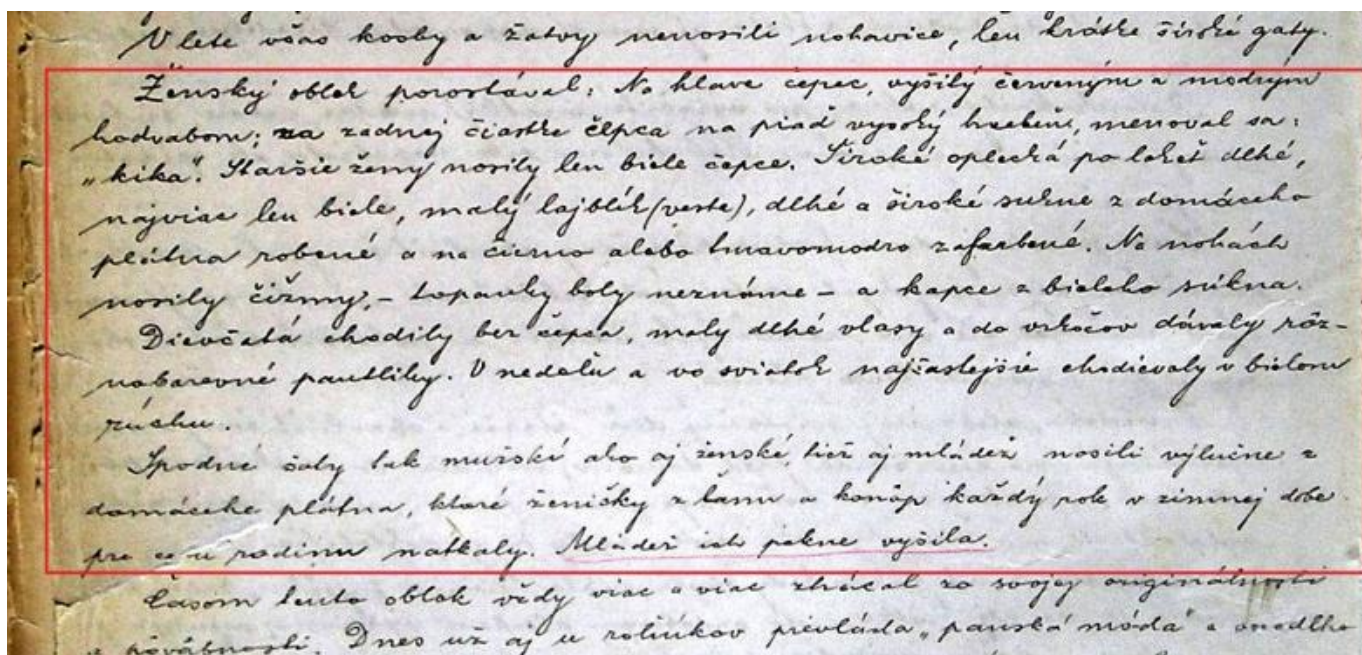 V lete včas kosby a žatvy nenosili nohavice, len krátke široké gaty.
Ženský oblek pozostával: Na hlave čepec, vyšitý červeným a modrým
hodvabom; na zadnej čiastke čepca na piaď vysoký hrebeň, menoval sa:
„kika". Staršie ženy nosily len biele čepce. Široké oplecká po lokeť dlhé,
najviac len biele, malý lajblík (veste), dlhé a široké sukne z domáceho
plátna robené a na čierno alebo tmavomodro zafarbené. Na nohách
nosily čižmy, – topánky boly neznáme – a kapce z bieleho súkna.
Dievčatá chodily bez čepca, maly dlhé vlasy a do vrkočov dávaly rôz-
nobarevné pantliky. V nedeľu a vo sviatok najčastejšie chodievaly v bielom
rúchu.
Spodné šaty tak mužskí ako aj ženské, tiež aj mládež nosili výlučne z
domáceho plátna, ktoré ženičky z ľanu a konôp každý rok v zimnej dobe
pre celú rodinu natkaly. Mládež ich pekne vyšila.
Časom tento oblek vždy viac a viac ztrácal zo svojej originálnosti
a pôvabnosti. Dnes už aj u roľníkov prevláda „panská móda" a onedlho